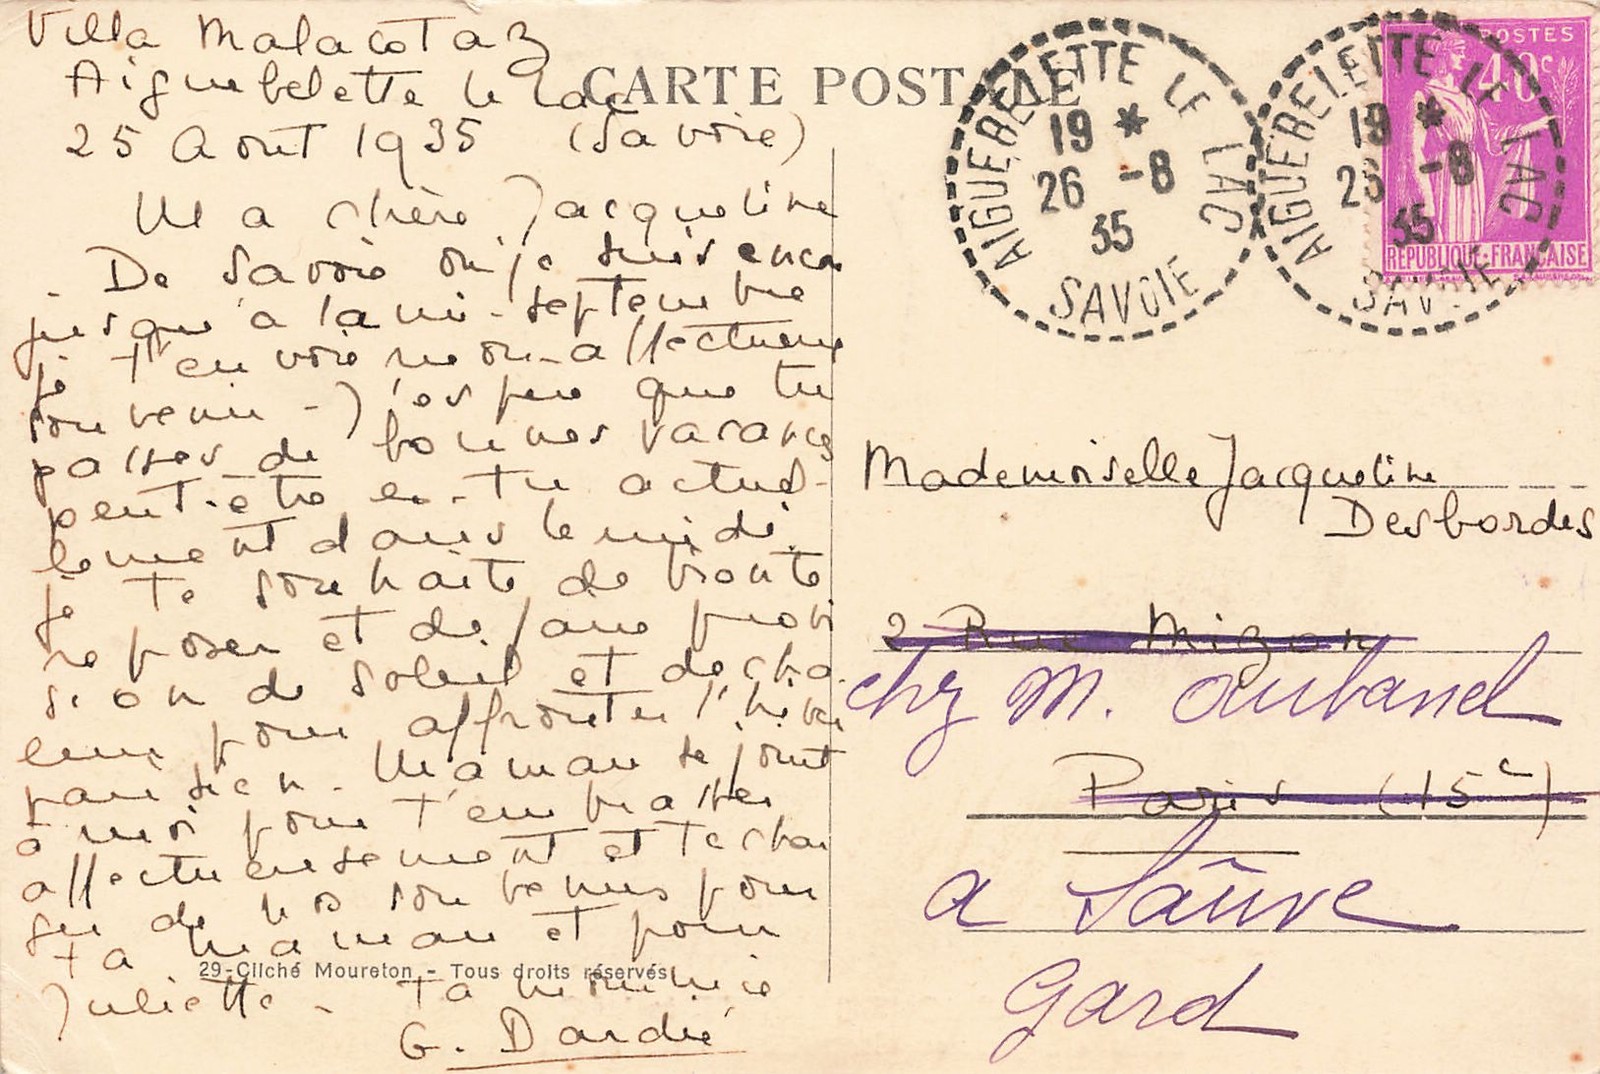 Villa Malacotaz
Aiguebelette le lac
25 Aout 1935 (Savoie)
CARTE POSTALE
Ma chère Jacqueline
- De Savoie où je suis encore
jusqu'à la mi-septembre
je t'envoie mon affectueux
souvenir - J'espère que tu
passes de bonnes vacances
peut-être es-tu actuel-
lement dans le midi.
Je te souhaite de bien te
reposer et de faire provi
sion de soleil et de cha
leur pour affronter l'hiver
parisien. Maman se joint
à moi pour t'embrasser
affectueusement et te char
ger de nos souvenirs pour
ta maman et pour
Juliette - ta monitrice
G. Dardié
29-Cliché Moureton - Tous droits réservés
AIGUEBELETTE LE LAC
19 *
26 -8
35
SAVOIE
AIGUEBELETTE LE LAC
19 *
26 -8
35
SAVOIE
POSTES
40c
REPUBLIQUE·FRANÇAISE
Mademoiselle Jacqueline
Desbordes
2 Rue Mizon
chez M. Aubanel
Paris (15e)
a Saûve
Gard